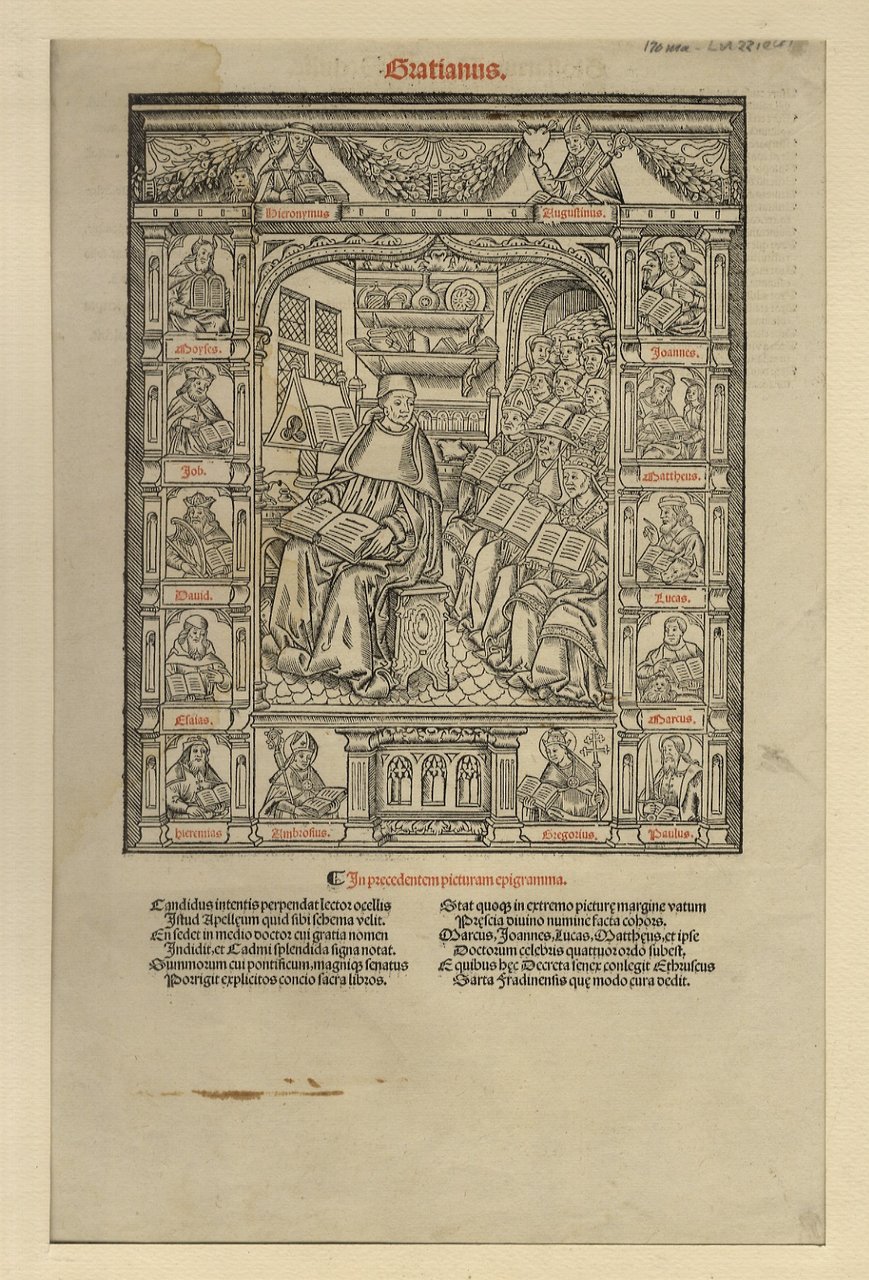 Gratianus.
Hieronymus
Augustinus.
Moyses.
Joannes.
Job.
Mattheus.
David.
Lucas.
Esaias.
Marcus.
hieremias
Ambrosius.
Gregorius.
Paulus.
In precedentem picturam epigramma.
Candidus intentis perpendat lector ocellis
Istud Apellęum quid sibi schema velit.
En sedet in medio doctor cui gratia nomen
Indidit, et Cadmi splendida signa notat.
Summorum cui pontificum, magniqꝫ senatus
Porrigit explicitos concio sacra libros.
Stat quoqꝫ in extremo picturę margine vatum
Pręscia diuino numine facta cohors.
Marcus, Joannes, Lucas, Matthęus, et ipse
Doctorum celebris quattuor ordo subest,
E quibus hęc Decreta senex conlegit Ethruscus
Sarta Fradinensis quę modo cura dedit.